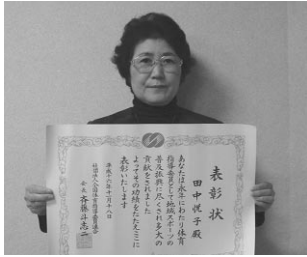 表彰状
田中悦子殿
あなたは永年にわたり体育
指導委員として地域スポーツの
普及振興に尽くされ多大の
貢献をされました
よってその功績をたたえここに
表彰いたします
平成十六年十一月十八日
会長 斉藤斗志二